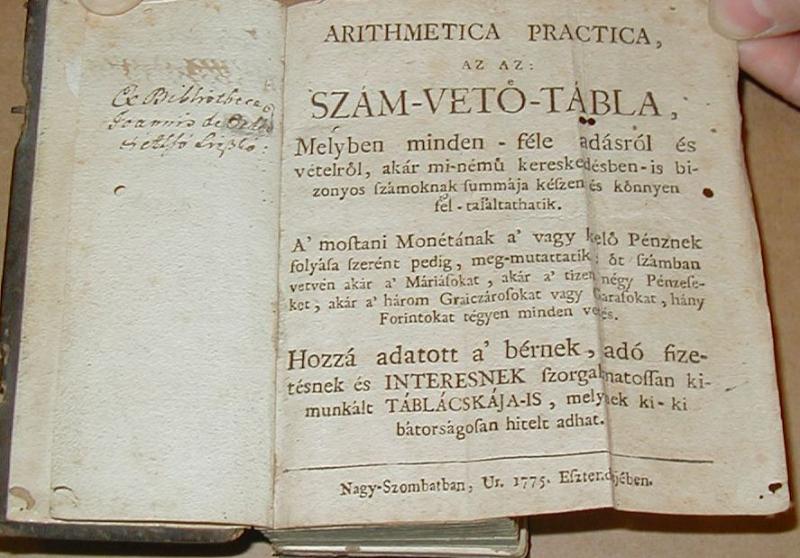 Ex Bibliotheca
Joannis de
ARITHMETICA PRACTICA,
AZ AZ:
SZÁM-VETŐ-TÁBLA,
Melyben minden-féle adásról és
vételről, akár mi-némű kereskedésben-is bi-
zonyos ſzámoknak ſummája kéſzen és kőnnyen
fel-találtathatik.
A' moſtani Monétának a' vagy kelő Pénznek
folyáſa ſzerént pedig, meg-mutattatik: őt ſzámban
vetvén akár a' Máriáſokat, akár a' tizen négy Pénzeſe-
ket, akár a' három Graiczároſokat vagy Garaſokat, hány
Forintokat tégyen minden vetés.
Hozzá adatott a' bérnek, adó fize-
tésnek és INTERESNEK ſzorgalmatoſſan ki-
munkált TÁBLÁCSKÁJA-IS, melynek ki-ki
bátorságoſan hitelt adhat.
Nagy-Szombatban, Ur. 1775. Eſztendejében.